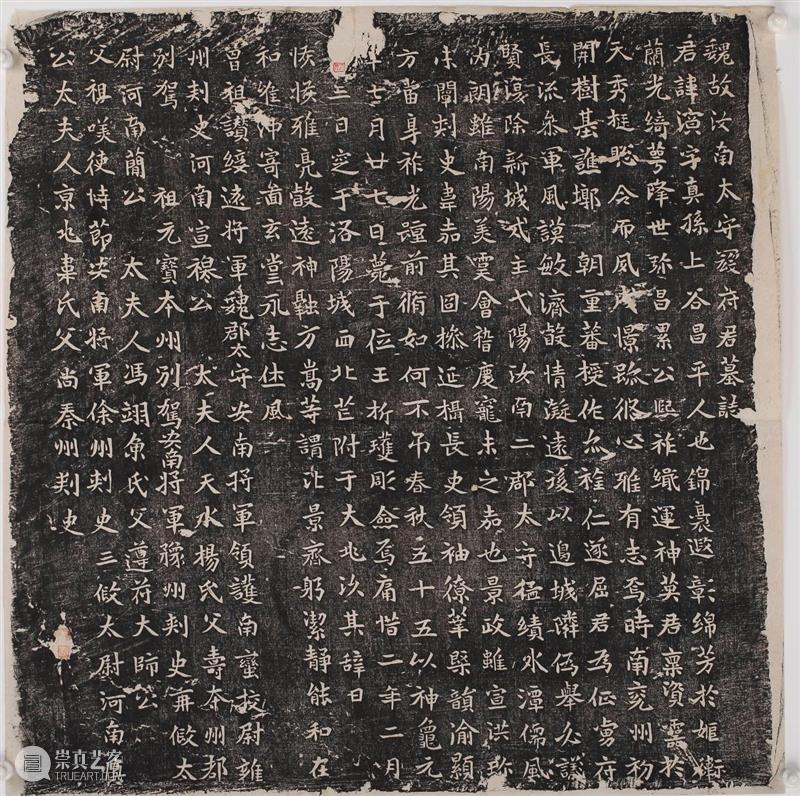 魏故汝南太守寇府君墓誌
君諱演字真孫上谷昌平人也錦裹遐彰綿芳於姬衛
蘭光綺萼降世弥昌累公熙祚繼運神英君稟資靈於
天秀挺聡令而夙憬跡脩心雅有志焉時南兖州初
開樹基譙鄴一朝重蕃授佐亦雅仁遂屈君為征虜府
長流叅軍風謨敏濟毃情凝遠後以邊城隣伪舉尒議
賢復除新城戍主弋陽汝南二郡太守猛績水潭儒風
內朗雖南陽美霣會稽慶寵未之嘉也景政雖宣洪珎
未闡刾史韋嘉其固操延攝長史領袖僚槩韻渝顯
方當享祚光蹤前脩如何不弔春秋五十五以神龜元
年七月廿七日薨于位王折瓊彫僉焉痛惜二年二月
三日窆于洛陽城西北芒附于大兆汝其辞曰
恢恢雅亮毃遠神融方嵩等謂比景齊躬潔靜能和在
和唯沖寄啚玄堂永志休風
曾祖讚綏遠將軍魏郡太守安南將軍領護南蠻挍尉雍
州刾史河南宣穆公 太夫人天水楊氏父壽本州都
別駕 祖元寶本州別駕安南將軍豫州刾史再假太
尉河南簡公 太夫人馮翊魚氏父遵苻大師公
父祖嘆使恃節安南將軍徐州刾史三假太尉河南
公太夫人京兆韋氏父尚秦州刾史
崇真艺客
TRUEART.COM